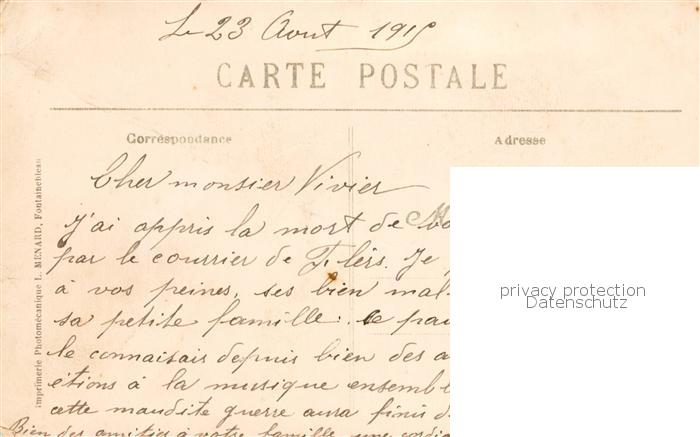 Le 23 Aout 1915
CARTE POSTALE
Correspondance
Adresse
Imprimerie Photomécanique L. MENARD, Fontainebleau
Cher monsier Vivier
J'ai appris la mort de
par le courrier de Flers. Je
à vos peines, ses bien mal-
sa petite famille: le pau
le connaisais depuis bien des a
étions à la musique ensembl
cette maudite guerre aura finis d
Bien des amitiés à votre famille une cordia
privacy protection
Datenschutz